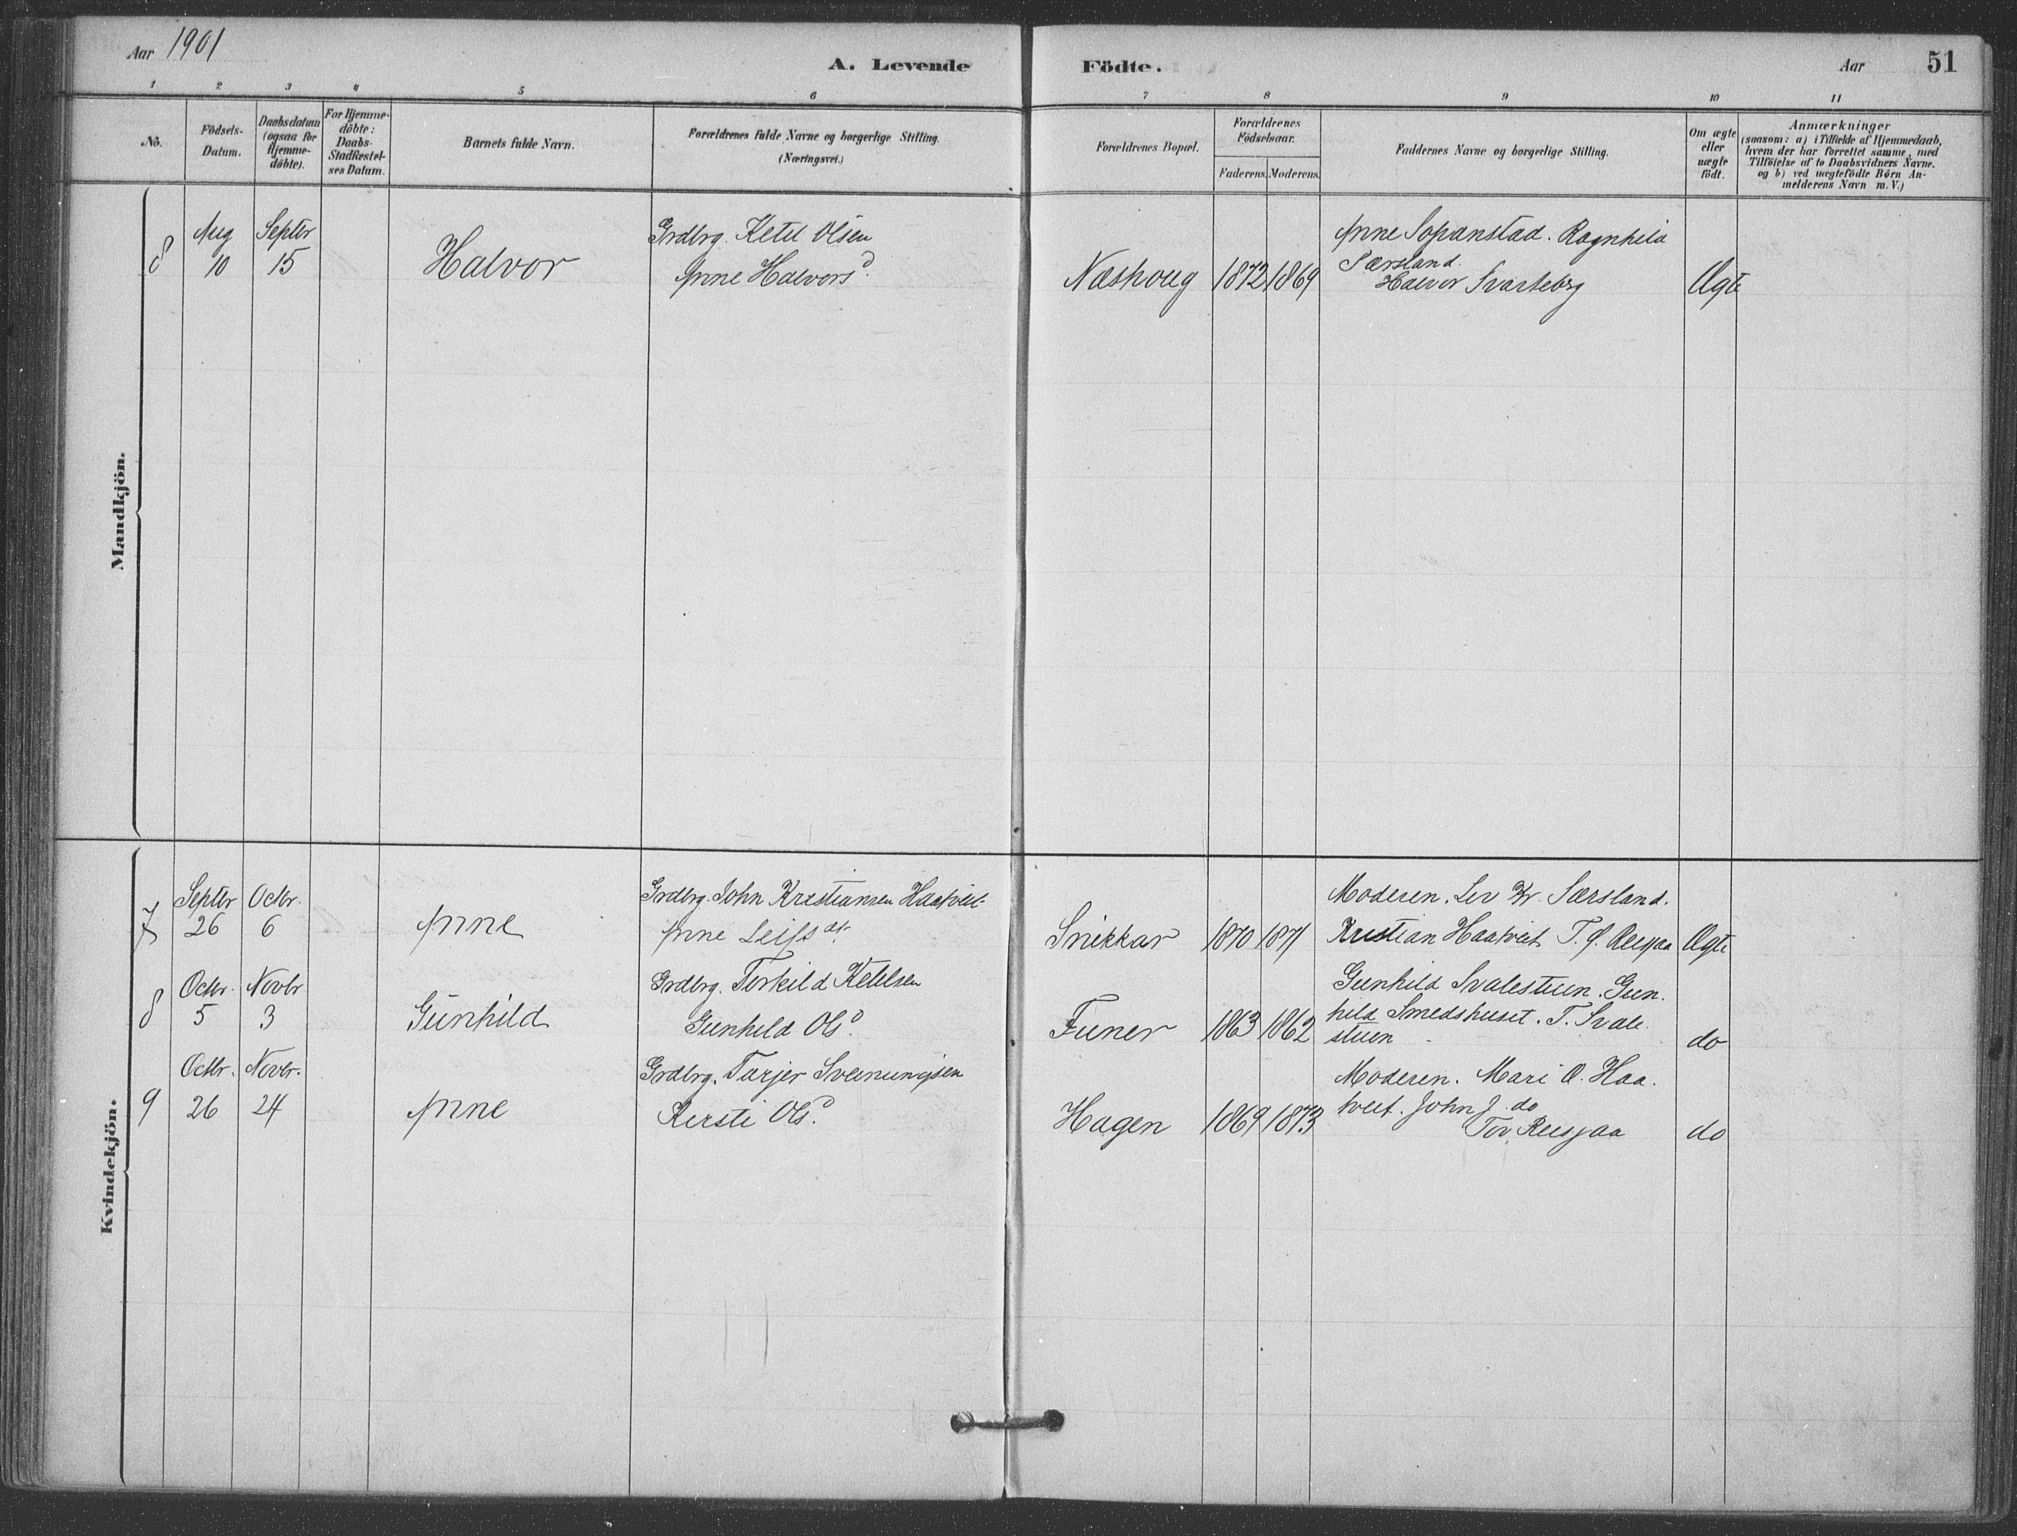 Aar 1901
A. Levende Födte.
Aar
51
1 2 3 4 5 6 7 8 9 10 11
No.
Födsels-
Datum.
Daabsdatum
(ogsaa for
Hjemme-
döbte).
For Hjemme-
döbte:
Daabs-
Stadfæstel-
ses Datum.
Barnets fulde Navn.
Forældrenes fulde Navne og borgerlige Stilling.
(Næringsvei.)
Forældrenes Bopæl.
Forældrenes
Födselsaar.
Faderens. Moderens.
Faddernes Navne og borgerlige Stilling.
Om ægte
eller
uægte
födt.
Anmærkninger
(saasom: a) i Tilfælde af Hjemmedaab,
hvem der har forrettet samme, med
Tilföielse af to Daabsvidners Navne.
og b) ved uægtefödte Börn An-
melderens Navn m. V.)
Mandkjön.
8
Aug
10
Septbr
15
Halvor
Grdbrg. Ketil Olsen
Anne Halvorsd.
Næshoug
1872
1869
Anne Sopanstad. Ragnhild
Særsland.
Halvor Svarteberg
Ægte
Kvindekjön.
7
Septbr
26
Octbr.
6
Anne
Grdbrg. John Kristiansen Haatveit
Anne Leifsdt.
Snikkar
1870
1871
Moderen. Liv Kr Særsland.
Kristian Haatveit T. O. Reisjaa
Ægte
8
Octbr.
5
Novbr
3
Gunhild
Grdbrg. Torkild Ketilsen
Gunhild Olsd.
Funer
1863
1862
Gunhild Svalestuen. Gun.
hild Smedshuset. T. Svale.
stuen
do
9
Octbr.
26
Novbr.
24
Anne
Grdbrg. Tarjer Sveinungsen
Kersti Olsd.
Hagen
1869
1873
Moderen. Mari O. Haa.
tveit. John J. do
Tov. Reisjaa
do